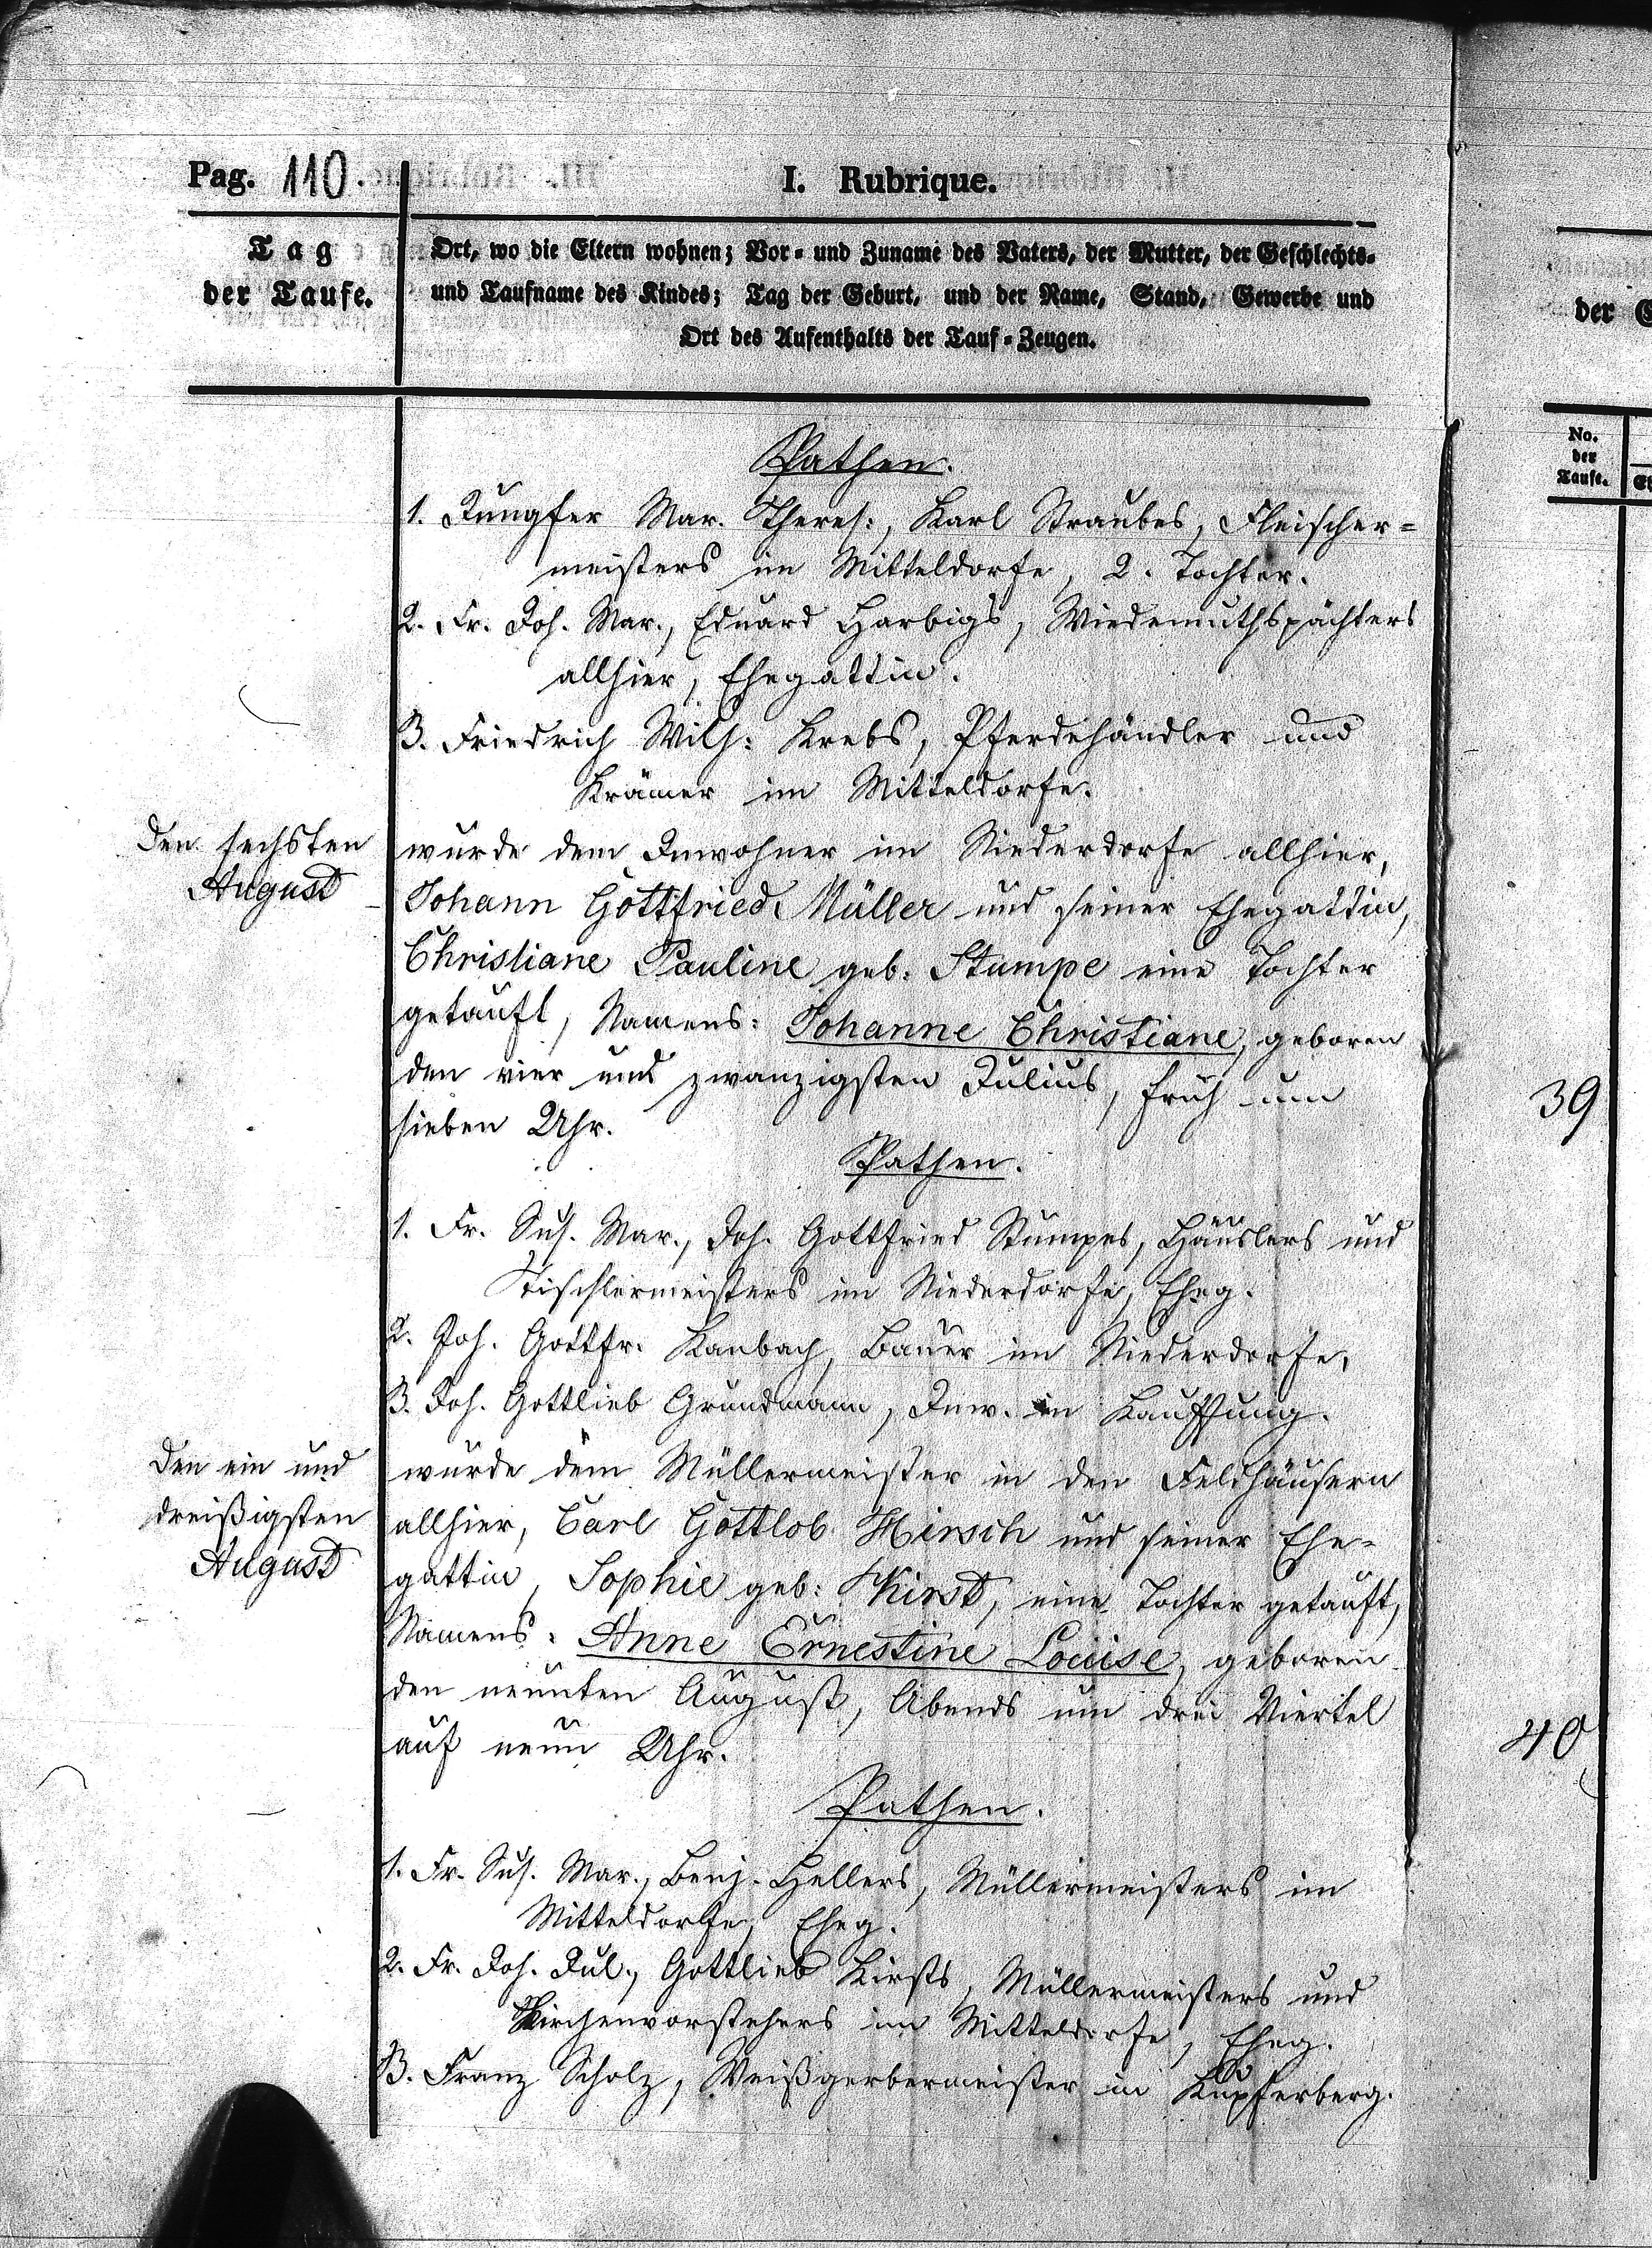 Pag. 110.
I. Rubrique.
Tag
der Taufe.
Ort, wo die Eltern wohnen; Vor- und Zuname des Vaters, der Mutter, der Geschlechts-
und Taufname des Kindes; Tag der Geburt, und der Name, Stand, Gewerbe und
Ort des Aufenthalts der Tauf-Zeugen.
Pathen.
1. Jungfer Mar. Theres:, Karl Straubes, Fleischer=
meisters im Mitteldorfe, 2. Tochter.
2. Fr. Joh. Mar., Eduard Harbigs, Wiedemuthspächters
allhier, Ehegattin.
3. Friedrich Wilh: Krebs, Pferdehändler und
Krämer im Mitteldorfe.
Den sechsten
August
wurde dem Inwohner im Niederdorfe allhier,
Johann Gottfried Müller und seiner Ehegattin,
Christiane Pauline geb: Stumpe eine Tochter
getauft, Namens: Johanne Christiane, geboren
den vier und zwanzigsten Julius, früh um
sieben Uhr.
Pathen.
1. Fr. Sus. Mar., Joh. Gottfried Stumpes, Häuslers und
Tischlermeisters im Niederdorfe, Eheg.
2. Joh. Gottfr. Kanbach, Bauer im Niederdorfe,
3. Joh. Gottlieb Grundmann, Inw. in Kauffung.
Den ein und
dreißigsten
August
wurde dem Müllermeister in den Feldhäusern
allhier, Carl Gottlob Hirsch und seiner Ehe-
gattin, Sophie geb: Kirst, eine Tochter getauft,
Namens: Anne Ernestine Louise, geboren
den neunten August, Abends um drei Viertel
auf neun Uhr.
Pathen.
1. Fr. Sus. Mar., Benj. Hellers, Müllermeisters im
Mitteldorfe, Eheg.
2. Fr. Joh. Jul., Gottlieb Kirsts, Müllermeisters und
Kirchenvorstehers im Mitteldorfe, Eheg.
3. Franz Scholz, Weißgerbermeister in Kupferberg.
der
No.
der
Taufe.
39
40